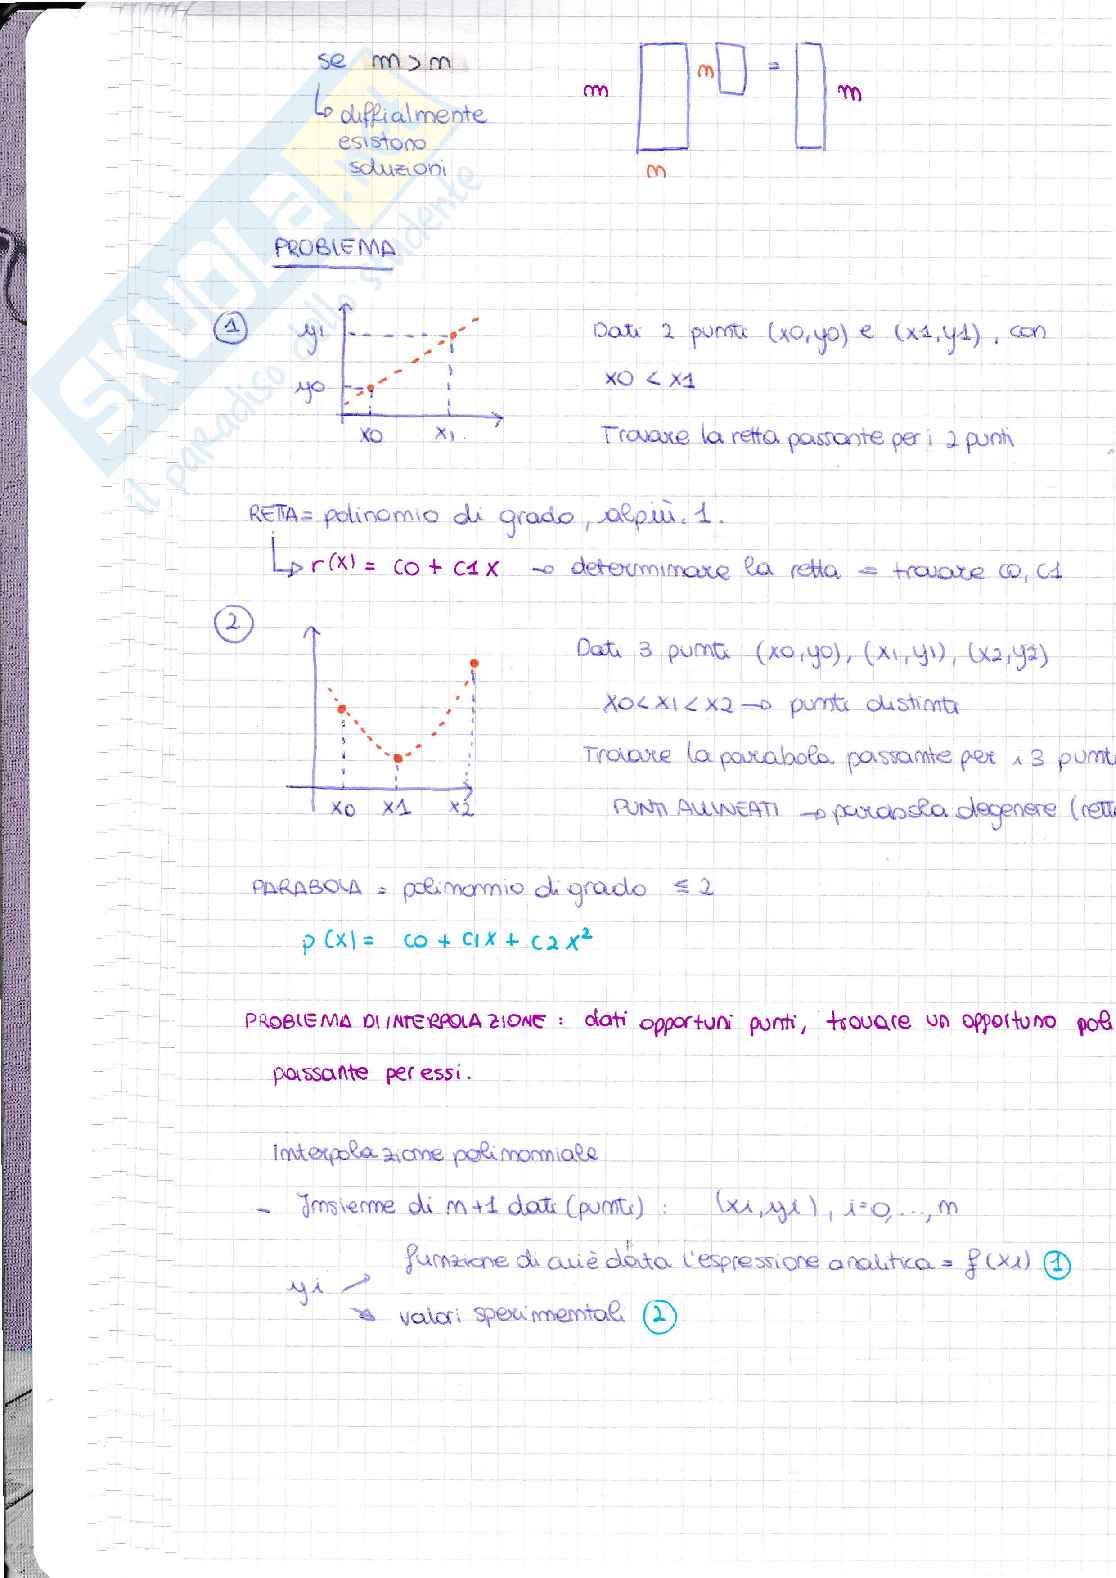 se m > n
m n = m
↳ difficilmente
esistono
soluzioni
n
PROBLEMA
① y1 Dati 2 punti (x0,y0) e (x1,y1), con
y0 x0 < x1
x0 x1 Trovare la retta passante per i 2 punti
RETTA = polinomio di grado, al più, 1.
↳ r(x) = c0 + c1x → determinare la retta = trovare c0, c1
② Dati 3 punti (x0,y0), (x1,y1), (x2,y2)
x0<x1<x2 → punti distinti
Trovare la parabola passante per i 3 punti
x0 x1 x2 PUNTI ALLINEATI → parabola degenere (retta
PARABOLA = polinomio di grado ≤ 2
p(x) = c0 + c1x + c2x²
PROBLEMA DI INTERPOLAZIONE: dati opportuni punti, trovare un opportuno poli
passante per essi.
Interpolazione polinomiale
- Insieme di n+1 dati (punti): (xi,yi), i=0,...,n
funzione di cui è data l'espressione analitica = f(xi) ①
yi
valori sperimentali ②
SKUOLA.NET
il paradiso dello studente